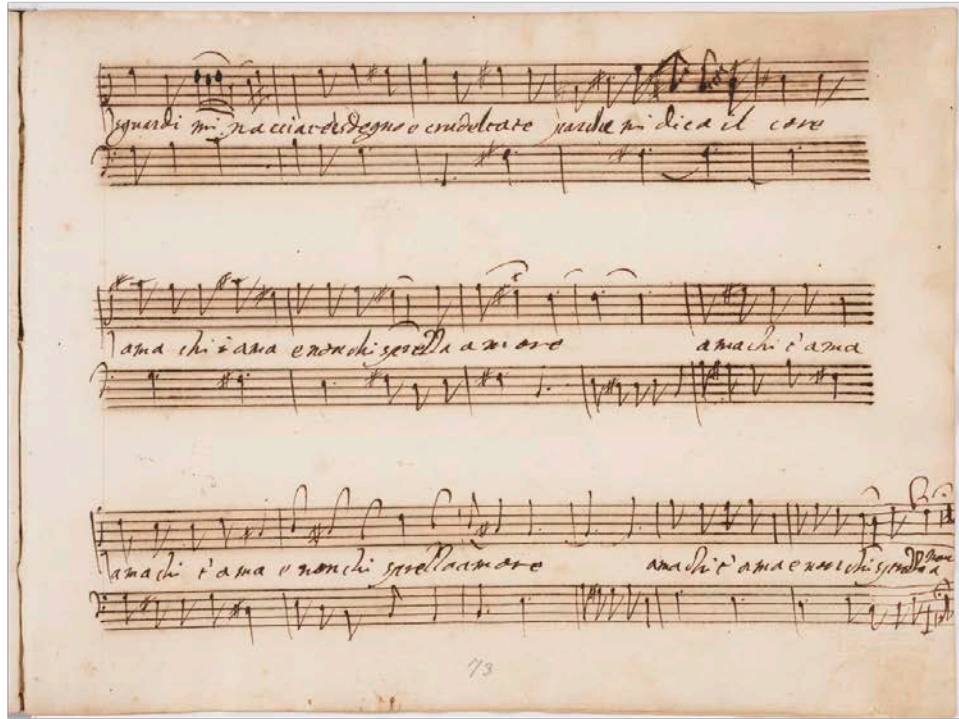 sguardi mi nacciate sdegno e crudeltate parche mi dica il core
ama chi t'ama e non chi sprezza amore ama chi t'ama
ama chi t'ama e non chi sprezza amore ama chi t'ama e non chi sprezza
73